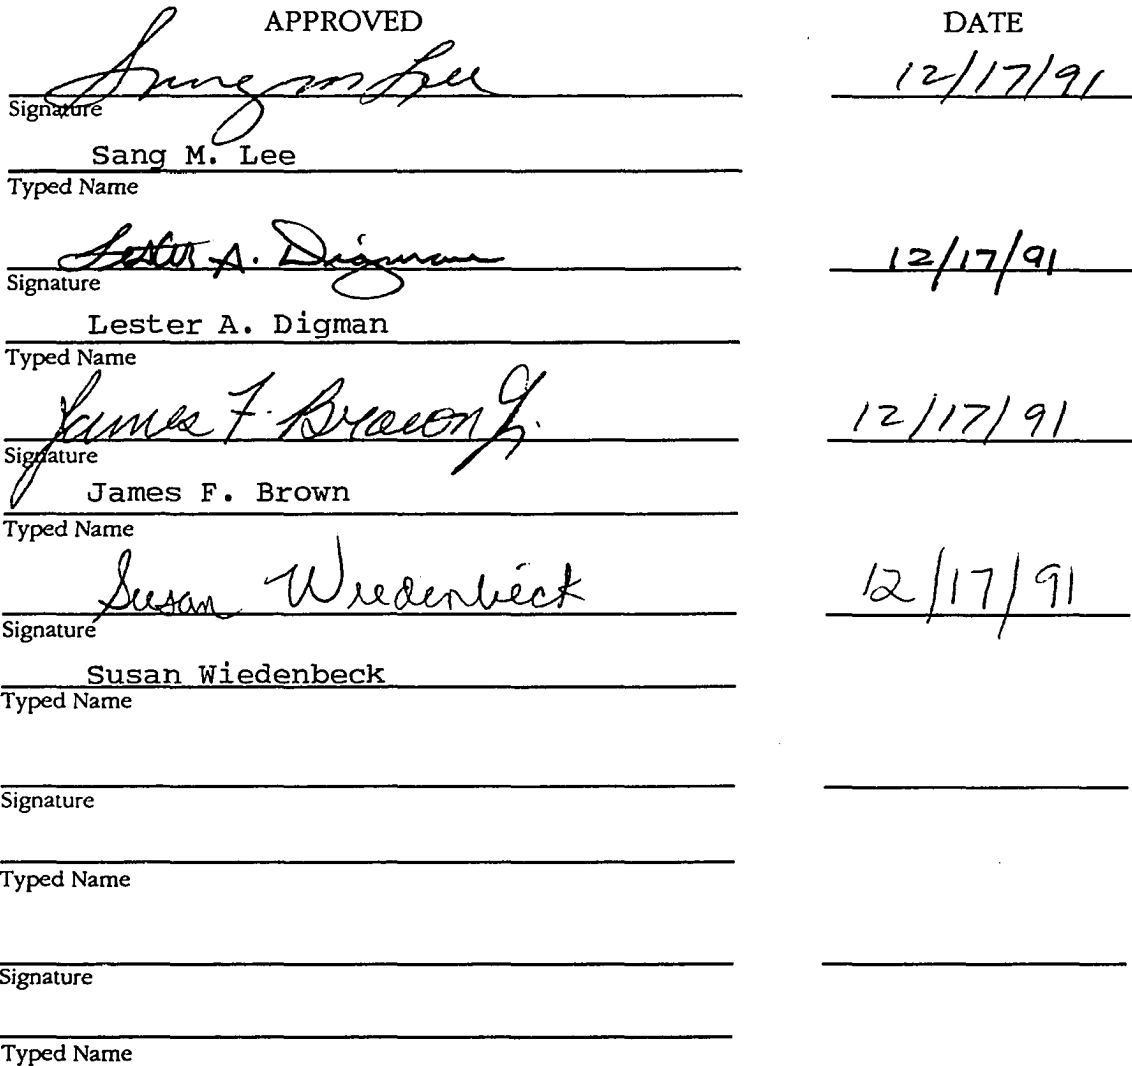 APPROVED DATE
Sang M Lee 12/17/91
Signature
Sang M. Lee
Typed Name
Lester A. Digman 12/17/91
Signature
Lester A. Digman
Typed Name
James F. Brown Jr. 12/17/91
Signature
James F. Brown
Typed Name
Susan Wiedenbeck 12/17/91
Signature
Susan Wiedenbeck
Typed Name
Signature
Typed Name
Signature
Typed Name